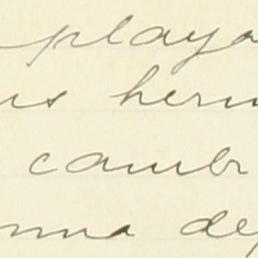 playa
us herm
cambr
nna dep